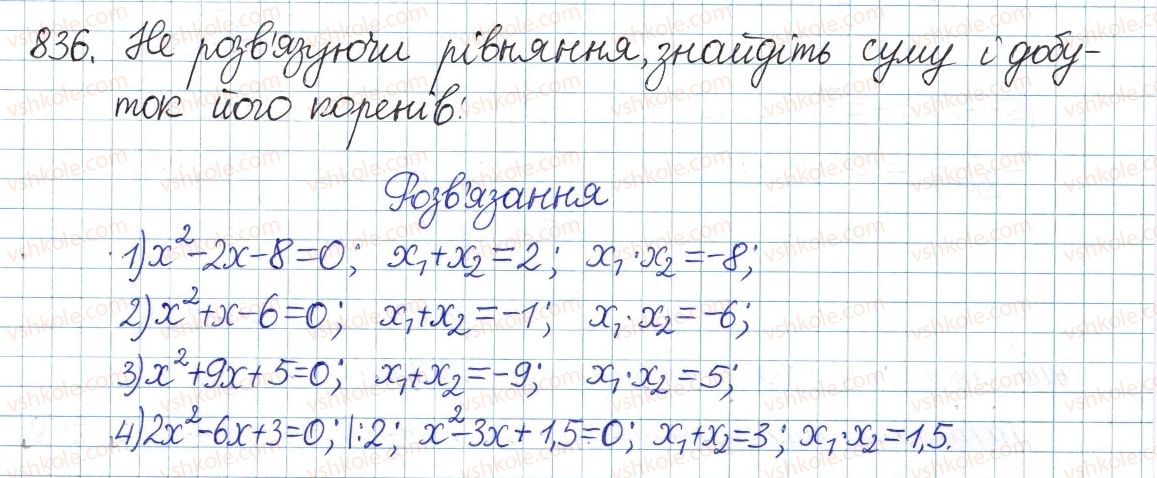 836. Не розв'язуючи рівняння, знайдіть суму і добу-
ток його коренів:
Розв'язання
1) x²-2x-8=0; x₁+x₂=2; x₁·x₂=-8;
2) x²+x-6=0; x₁+x₂=-1; x₁·x₂=-6;
3) x²+9x+5=0; x₁+x₂=-9; x₁·x₂=5;
4) 2x²-6x+3=0; |:2; x²-3x+1,5=0; x₁+x₂=3; x₁·x₂=1,5.